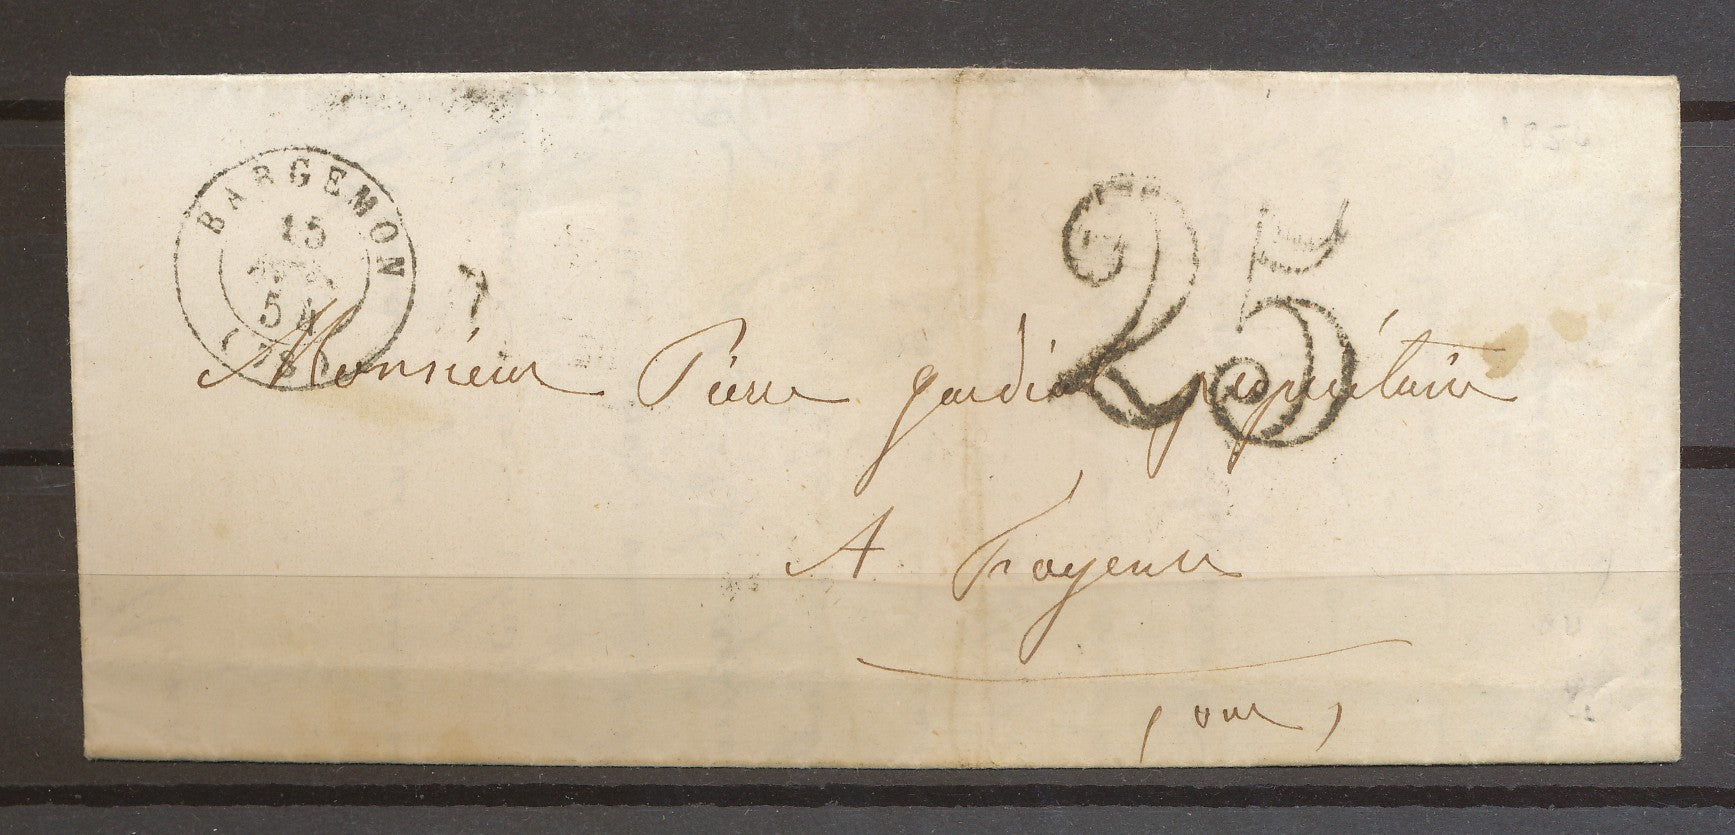 BARGEMON
15
54
(78)
25
Monsieur Pierre gardiol propriétaire
A Fayence
(var)